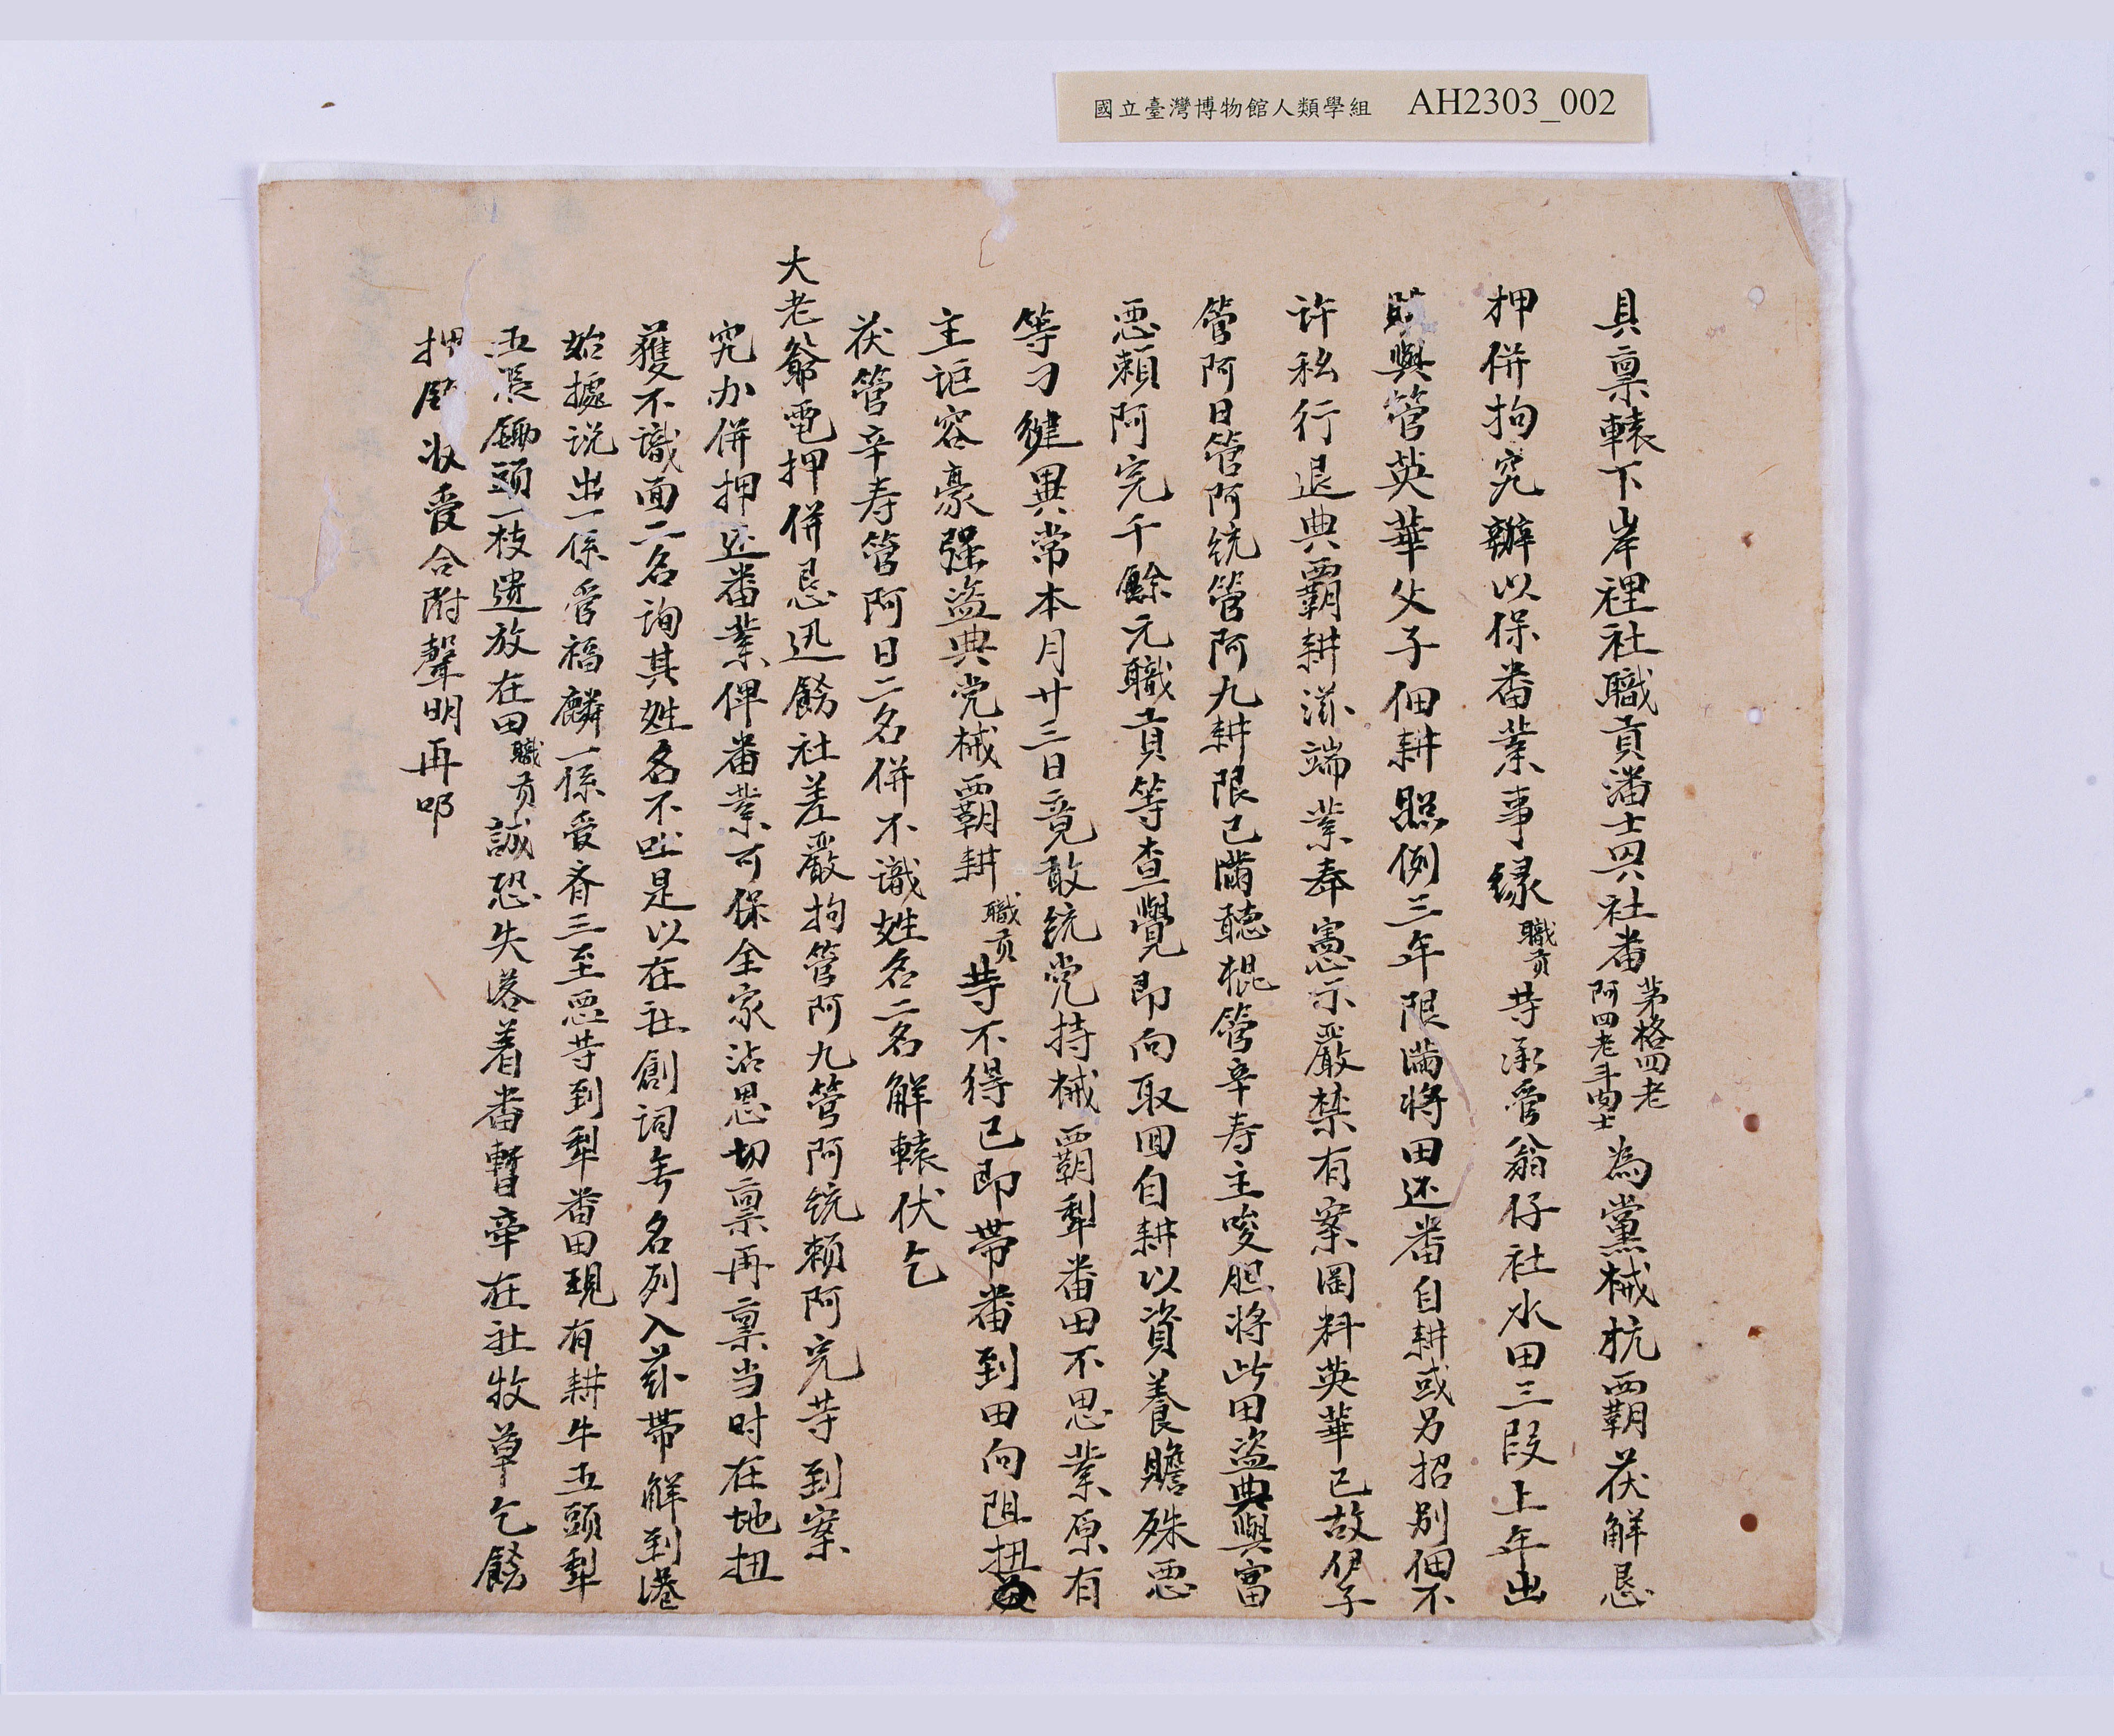 國立臺灣博物館人類學組 AH2303_002
具稟轅下岸裡社職貢潘士興社番茅格四老阿四老斗肉士為黨械抗覇茯解恳
押併拘究辦以保番業事緣職貢荨承管翁仔社水田三段上年出
贌與管英華父子佃耕照例三年限滿將田还番自耕或另招别佃不
许私行退典覇耕滋端業奉憲示嚴禁有案罔料英華已故伊子
管阿日管阿统管阿九耕限已滿聽棍管辛寿主唆胆將此田盜典與富
悪賴阿完千餘元職貢等查覺即向取回自耕以資養贍殊悪
等刁健異常本月廿三日竟敢统党持械覇犁番田不思業原有
主詎容豪强盜典党械覇耕職貢荨不得已即带番到田向阻扭
茯管辛寿管阿日二名併不識姓名二名解轅伏乞
大老爺電押併恳迅飭社差嚴拘管阿九管阿统賴阿完荨到案
究办併押还番業俾番業可保全家沾恩切稟再稟当时在地扭
獲不識面二名詢其姓名不吐是以在社創词無名列入茲带解到港
始據说出一係管福麟一係管齐三至悪荨到犁番田現有耕牛五頭犁
五張鋤頭一枝遗放在田職貢誠恐失落着番暫牵在社牧草乞飭
押 收管合附聲明再叩